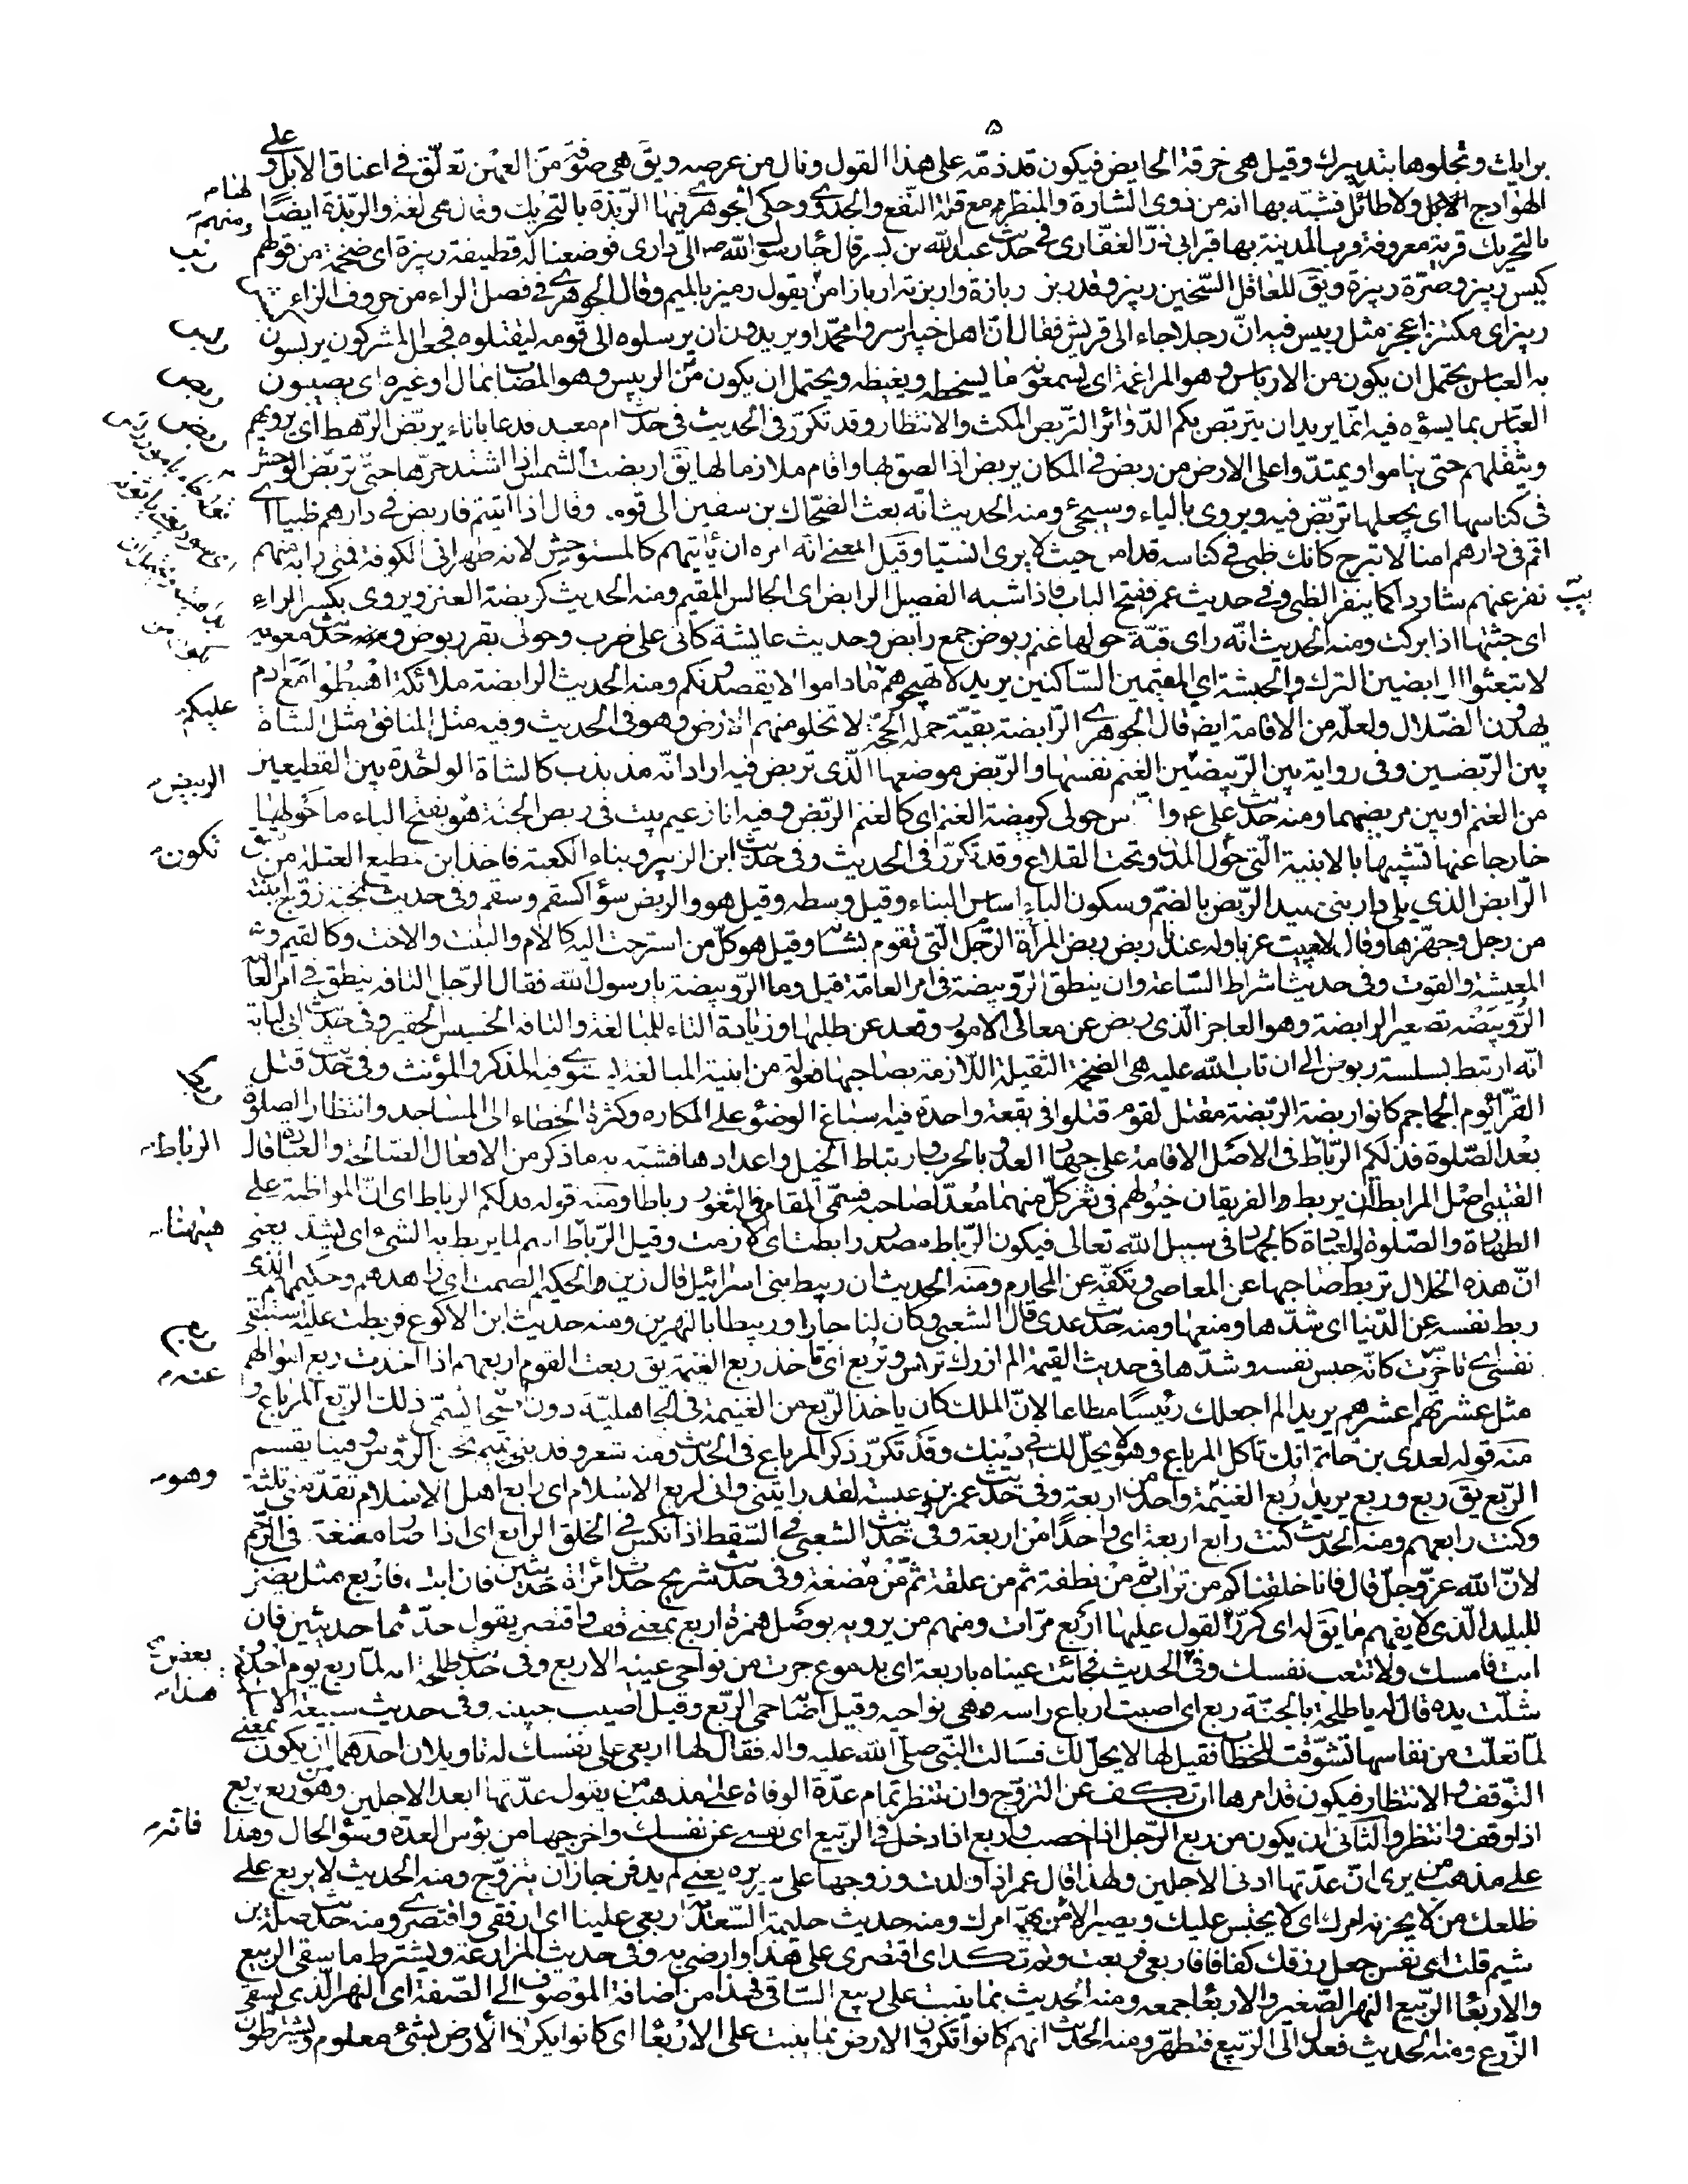 برايك وتجلوها بتدبيرك وقيل هى خرقة الحايض فيكون قد ذمّه على هذا القول ونال من عرضه ويقَ هى صوفة من العهن تعلّق فى اعناق الابل وعلى
الهوادج ولا طائل فشبّه بها انه من ذوى الشارة والمنظر مع قلة النّفع والجدوى وحكى الجوهرى فيها الرّبَذة بالتحريك وقال هى لغة والرّبذة ايضًا
بالتحريك قرية معروفة قرب المدينة بها قبر ابى ذرّ الغفّارى فى حديث عبد الله بن بسر قال جاء رسول الله ص الى دارى فوضعنا له قطيفة ربيزة اى ضخمة من قولهم
كيس ربيز وصرّة ربيزة ويقَ للعاقل السّخين ربيز وقد ربز ربازة واربزته ارباز ا من يقول رميز بالميم وقال الجوهرى فى فصل الراء من حروف الزاء
ربيز اى مكتنز اعجز مثل ربيس فيه انّ رجلا جاء الى قريش فقال انّ اهل خيبر اسروا محمّدا ويريدون ان يرسلوه الى قومه ليقتلوه فجعل المشركون يربسون
به العباس يحتمل ان يكون من الارباس وهو المراغمة اى يسمعونه ما يسخطه ويغيظه ويحتمل ان يكون من الربيس وهو المصاب بمال او غيره اى يصيبون
العبّاس بما يسؤه فيه انّما يريد ان يتربّص بكم الدّوائر التربّص المكث والانتظار وقد تكرّر فى الحديث فى حديث ام معبد فدعا باناء يربض الرّهط اى يرويهم
ويثقلهم حتى يناموا ويمتدّوا على الارض من ربض فى المكان يربض اذا لصق بها واقام ملازما لها يقَ اربضت الشمس اذا اشتد حرّها حتّى تربض الوحش
فى كناسها اى يجعلها تربض فيه ويروى بالياء وسيجئ ومنه الحديث انّه بعث الضحّاك بن سفين الى قومه وقال اذا اتيتم فاربض فى دارهم ظبيا اى
اقم فى دارهم امنا لا تبرح كانك ظبى فى كناسه قد امن حيث لا يرى انسيّا وقيل المعنى انّه امره ان ياتيهم كالمستوحش لانه ظهرانى الكفرة فمتى رابه منهم
نفر عنهم شاردا كما ينفر الظبى وفى حديث عمر ففتح الباب فاذا شبه الفصيل الرابض اى الجالس المقيم ومنه الحديث كربضة العنز ويروى بكسر الراءِ
اى جثتها اذا بركت ومنه الحديث انّه راى قبّة حولها غنم ربوض جمع رابض وحديث عايشة كانّى على ضرب وحولى بقر ربوض ومنه حديث معوية
لا تبعثوا الرابضين الترك والحبشة اى المقيمين السّاكنين يريد لا تهيجوهم ما داموا لا يقصدونكم ومنه الحديث الرابضة ملائكة اهبطوا مع ادم
يهدون الضّلال ولعلّه من الاقامة ايض قال الجوهرى الرّابضة بقيّة حملة الحجّة لا تخلو منهم الارض وهو فى الحديث وفيه مثل المنافق مثل الشاة
بين الرّبضين وفى رواية بين الرّبيضين الغنم نفسها والرّبض موضعها الّذى تربض فيه اراد انّه مذبذب كالشاة الواحدة بين القطيعين
من الغنم او بين مربضيهما ومنه حديث على حولى كربيضة الغنم اى كالغنم الرّبّض وفيه انا زعيم ببيت فى ربض الجنة هو بفتح الباء ما حولها
خارجا عنها تشبيها بالابنية الّتى حول المدن وتحت القلاع وقد تكرّر فى الحديث وفى حديث ابن الزبير وبناء الكعبة فاخذ ابن مطيع العتلة من شق
الرّابض الذى يلى دار بنى الرّبض بالضمّ وسكون الباء اساس البناء وقيل وسطه وقيل هو والربض سؤاء كسقم وسقم وفى حديث نجبة زوّج ابنته
من رجل وجهّزها وقال لا يبيت عزبا وله عندنا ربض ربض المرأة الرّجل الّتى تقوم بشانه وقيل هو كلّ من استرحت اليه كالام والبنت والاخت وكالقيم
المعيشة والقوت وفى حديث اشراط السّاعة وان ينطق الرّويبضة فى امر العامّة قيل وما الرّويبضة يا رسول الله فقال الرّجل التافه ينطق فى امر العامّة
الرّويبضة تصغير الرابضة وهو العاجز الّذى ربض عن معالى الامور وقعد عن طلبها وزيادة التاء للمبالغة والتافه الخسيس الحقير وفى حديث ابى لبابة
انّه ارتبط بسلسلة ربوض الى ان تاب الله عليه هى الضخمة الثقيلة اللّازمة بصاحبها فعولة من ابنية المبالغة يستوى فيه المذكر والمؤنث وفى حديث قتل
القرّاء يوم الجماجم كانوا ربضة الرّبضة مقتل لقوم قتلوا فى بقعة واحدة فيه اسباغ الوضوء على المكاره وكثرة الخطاء الى المساجد وانتظار الصلوة
بعد الصّلوة فذلكم الرّباط فى الاصل الاقامة على جهاد العدوّ بالحرب وارتباط الخيل واعدادها فشبّه به ما ذكر من الافعال الصّالحة والعبادة قال
القتيبى اصل المرابطة ان يربط الفريقان خيولهم فى ثغر كلّ منهما معدّ لصاحبه فسمّى المقام فى الثغور رباطا ومنه قوله فذلكم الرباط اى انّ المواظبة على
الطهارة والصّلوة والعبادة كالجهاد فى سبيل الله تعالى فيكون الرّباط مصدر رابطت اى لازمت وقيل الرّباط اسم لما يربط به الشئ اى يشدّ يعنى
انّ هذه الخلال تربط صاحبها عن المعاصى وتكفّه عن المحارم ومنه الحديث ان ربيط بنى اسرائيل قال زين الحكيم الصمت اى زاهدهم وحكيمهم الذى
ربط نفسه عن الدّنيا اى شدّها ومنعها ومنه حديث عدى قال الشعبى وكان لنا جارا وربيطا بالنهرين ومنه حديث ابن الاكوع فربطت عليه استبقى
نفسى اى تاخّرت كانّه حبس نفسه وشدّها فى حديث القيمة الم اذرك تراس وتربع اى تاخذ ربع الغنيمة يقَ ربعت القوم اربعهم اذا اخذت ربع اموالهم
مثل عشرتهم اعشرهم يريد الم اجعلك رئيسًا مطاعا لانّ الملك كان ياخذ الرّبع من الغنيمة فى الجاهليّة دون اصحابه ويسمّى ذلك الربع المرباع و
منه قوله لعدى بن حاتم انك تاكل المرباع وهو لا يحلّ لك فى دينك وقد تكرّر ذكر المرباع فى الحديث ومنه شعر وفد بنى تميم نحن الرّؤس وفينا يقسم
الربع يقَ ربع وربع يريد ربع الغنيمة واحد من اربعة وفى حديث عمر بن عبسة لقد رايتنى وانى لربع الاسلام اى رابع اهل الاسلام تقدّمنى ثلثة
وكنت رابعهم ومنه الحديث كنت رابع اربعة اى واحدًا من اربعة وفى حديث الشعبى فى السّقط اذا نكس فى الخلق الرابع اى اذا صار مضغة فى الرّحم
لانّ الله عزّ وجلّ قال فانا خلقناكم من تراب ثم من نطفة ثم من علقة ثمّ من مضغة وفى حديث شريح حدّث امراة حديثين فان ابت فاربع مثل يضرب
للبليد الّذى لا يفهم ما يقَ له اى كرّر القول عليها اربع مرّات ومنهم من يرويه بوصل همزة اربع بمعنى قف واقتصر يقول حدّثها حديثين فان
ابت فامسك ولا تتعب نفسك وفى الحديث فجائت عيناه باربعة اى بدموع جرت من نواحى عينيه الاربع وفى حديث طلحة انه لمّا ربع يوم احد و
شلّت يده قال له يا طلحة بالجنّة ربع اى اصيبت ارباع راسه وهى نواحيه وقيل اصابه حمى الرّبع وقيل اصيب جبينه وفى حديث سبيعة الاسلمية
لمّا تعلّت من نفاسها تشوّفت للخطّاب فقيل لها لا يحلّ لك فسالت النّبى صلّى الله عليه واله فقال لها اربعى على نفسك له تاويلان احدهما ان يكون بمعنى
التّوقف والانتظار فيكون قد امرها ان تكف عن التزوّج وان تنتظر تمام عدّة الوفاة على مذهب من يقول عدّتها ابعد الاجلين وهو من ربع يربع
اذا وقف وانتظر والثّانى ان يكون من ربع الرّجل اذا خصب واربع اذا دخل فى الرّبيع اى نفسى عن نفسك واخرجيها من بؤس العدّة وسوء الحال وهذا
على مذهب من يرى انّ عدّتها ادنى الاجلين ولهذا قال عمر اذا ولدت وزوجها على سريره يعنى لم يدفن جاز ان تتزوّج ومنه الحديث لا يربع على
ظلعك من لا يحزنه امرك اى لا يحتبس عليك ويصبر الّا من يهمّه امرك ومنه حديث حليمة السّعدية اربعى علينا اى ارفقى واقتصرى ومنه حديث صلة بن
شيم قلت اى نفس جعل رزقك كفافا فاربعى فربعت ولم تكد اى اقتصرى على هذا وارضى به وفى حديث المزارعة ويشترط ما سقى الربيع
والاربعاء الرّبيع النهر الصّغير والاربعا جمعه ومنه الحديث بما ينبت على ربيع السّاقى فهذا من اضافة الموصوف الى الصّفة اى النهر الّذى يسقى
الزّرع ومنه الحديث فعدل الى الرّبيع فتطهّر ومنه الحديث انهم كانوا يكرون الارض بما ينبت على الاربعا اى كانوا يكرون الارض بشئ معلوم ويشترطون
لهنام
ومنهم
ربس
ربص
ربض
عليكم
الربيض
تكون
ربط
الرباط
هيهنا
ربع
عنه
وهو
بعض
هذا
فاته